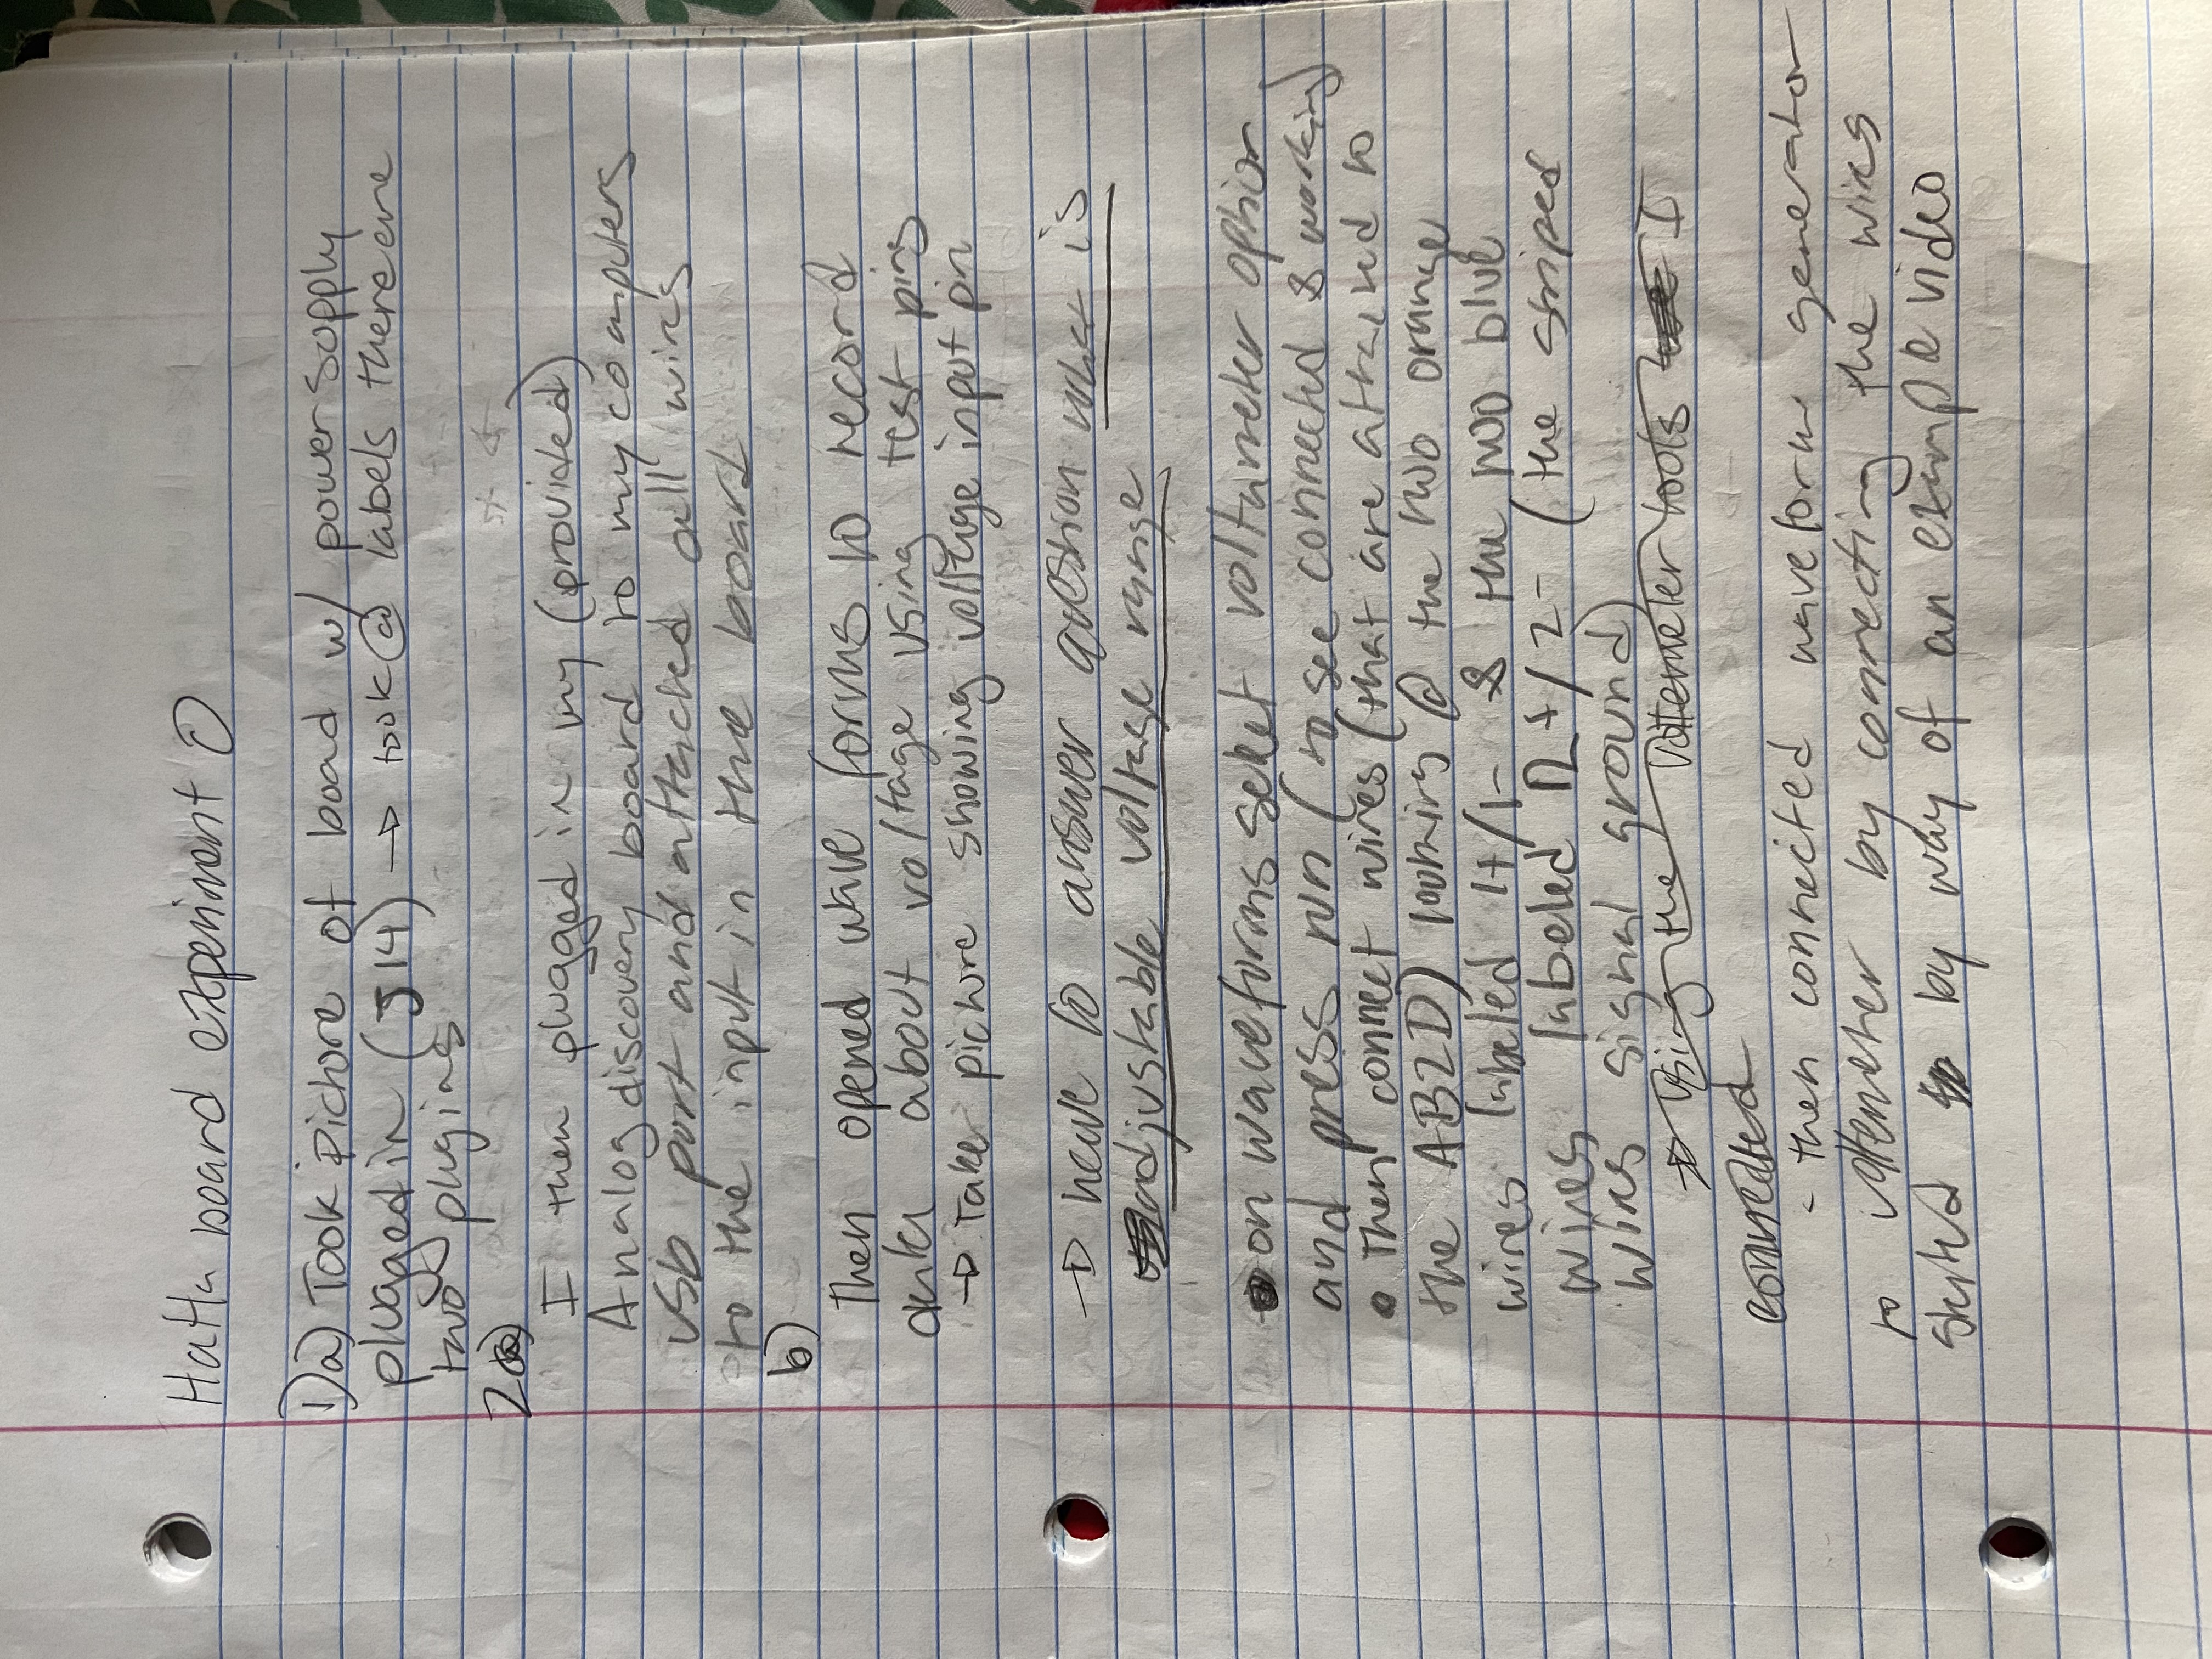 Hatta board experiment 0
1)a) Took Picture of boad w/ power supply
plugged in (J14) → took @ labels there are
two plugins
2a)
I then plugged in my (provided)
Analog discovery board to my computers
usb port and attached all wires
to the input in the board
b)
Then opened wave forms to record
data about voltage using test pins
→ Take picture showing voltage input pin
→ have to answer question what is
adjustable voltage range
• on waveforms select voltumeter option
and press run (to see connected & working)
• Then connect wires (that are attached to
the AB2D) looking @ the two orange
wires labeled 1+/1- & the two blue
wires labeled 2+/2- (the striped
wires signal ground)
→ Using the Voltemeter tools I
connected
- then connected waveform generator
to voltemeter by connecting the wires
started by way of an example video